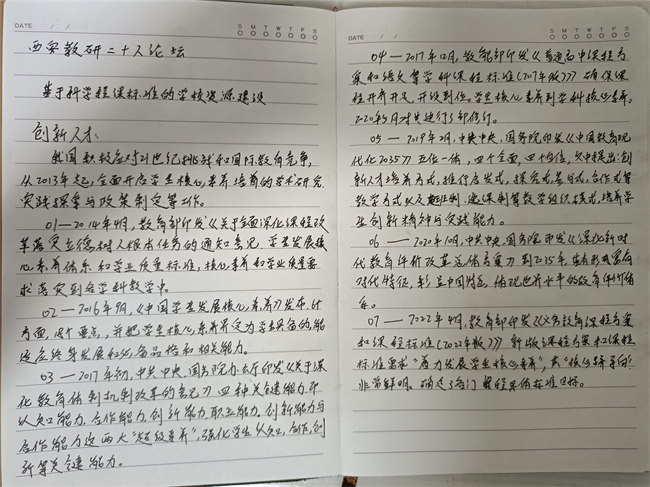 DATE / /
S M T W T F S
西安教研二十人论坛
基于科学程课标准的学校资源建设
创新人才:
我国积极应对21世纪挑战和国际教育竞争,
从2013年起,全面开启学生核心素养培育的学术研究
实践探索与政策制定等工作。
01—2014年4月,教育部印发《关于全面深化课程改
革落实立德树人根本任务的通知意见,学生发展核
心素养体系和学业质量标准,核心素养和学业质量要
求落实到各学科教学中。
02—2016年9月,《中国学生发展核心素养》发布,
方面,要点,并把学生核心素养界定为学生具备的能
适应终身发展和必备品格和相关能力。
03—2017年初,中共中央,国务院办公厅印发《关于深
化教育体制机制改革的意见》四种关键能力,即
认知能力,合作能力,创新能力,职业能力,创新能力与
合作能力这两大“超级素养”,强化学生认知,合作,创
新等关键能力。
DATE / /
S M T W T F S
04—2017年12月,教育部印发《普通高中课程方
案和语文等学科课程标准(2017年版)》确保课
程开齐开足,开设到位。学生核心素养到学科核心素养。
2020年5月对其进行了部修订。
05—2019年2月,中共中央,国务院印发《中国教育现
代化2035》五位一体,四个全面,四个自信,文中提出:创
新人才培养方式,推行启发式,探究式,参与式,合作式等
教学方式以及走班制,选课制等教学组织模式,培养学
生创新精神与实践能力。
06—2020年10月,中共中央,国务院印发《深化新时
代教育评价改革总体方案》到2035年,基本形成富有
时代特征,彰显中国特色,体现世界水平的教育评价体
系。
07—2022年4月,教育部印发《义务教育课程方案
和课程标准(2022年版)》新版课程方案和课程
标准要求“着力发展学生核心素养”,其“核心素养导向”
非常鲜明,确定了各门课程具体